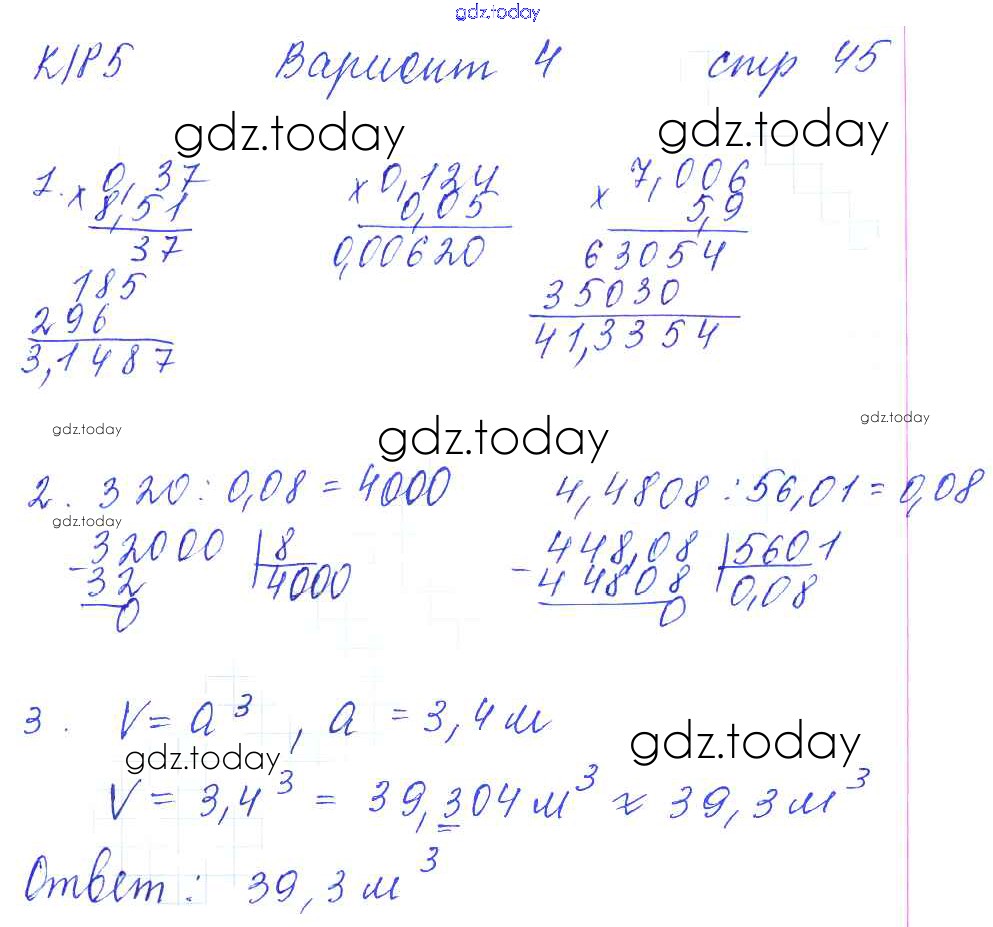 gdz.today
К/Р 5 Вариант 4 стр 45
gdz.today gdz.today
1. × 0,37 × 0,124 × 7,006
8,51 0,05 5,9
37 0,00620 63054
185 35030
296 41,3354
3,1487
gdz.today gdz.today gdz.today
2. 320 : 0,08 = 4000 4,4808 : 56,01 = 0,08
gdz.today
- 32000 8 - 448,08 5601
32 4000 44808 0,08
0 0
3. V = a³, a = 3,4 м
gdz.today gdz.today
V = 3,4³ = 39,304 м³ ≈ 39,3 м³
Ответ: 39,3 м³
gdz.today gdz.today